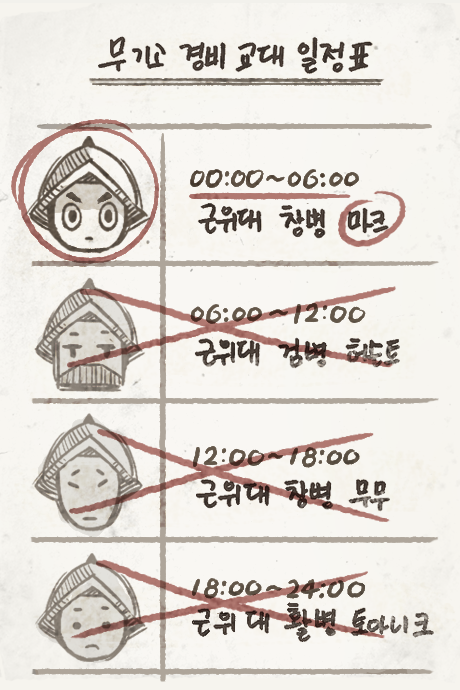 무기고 경비 교대 일정표
00:00~06:00
근위대 창병 마크
06:00~12:00
근위대 검병 허슬트
12:00~18:00
근위대 창병 무무
18:00~24:00
근위대 활병 토마니크